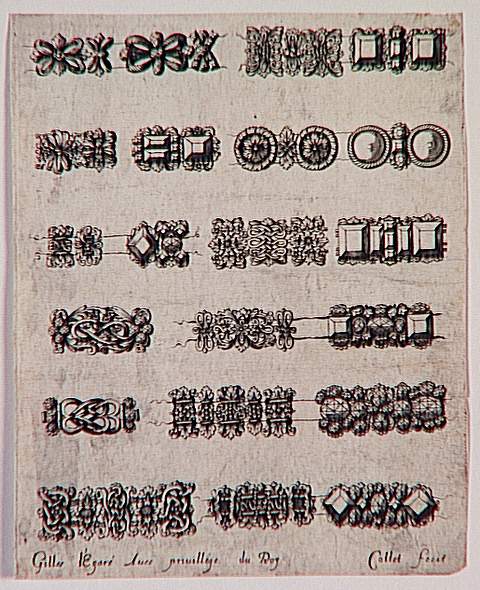 Gilles l'Egaré Avec privillége du Roy Collet fecit